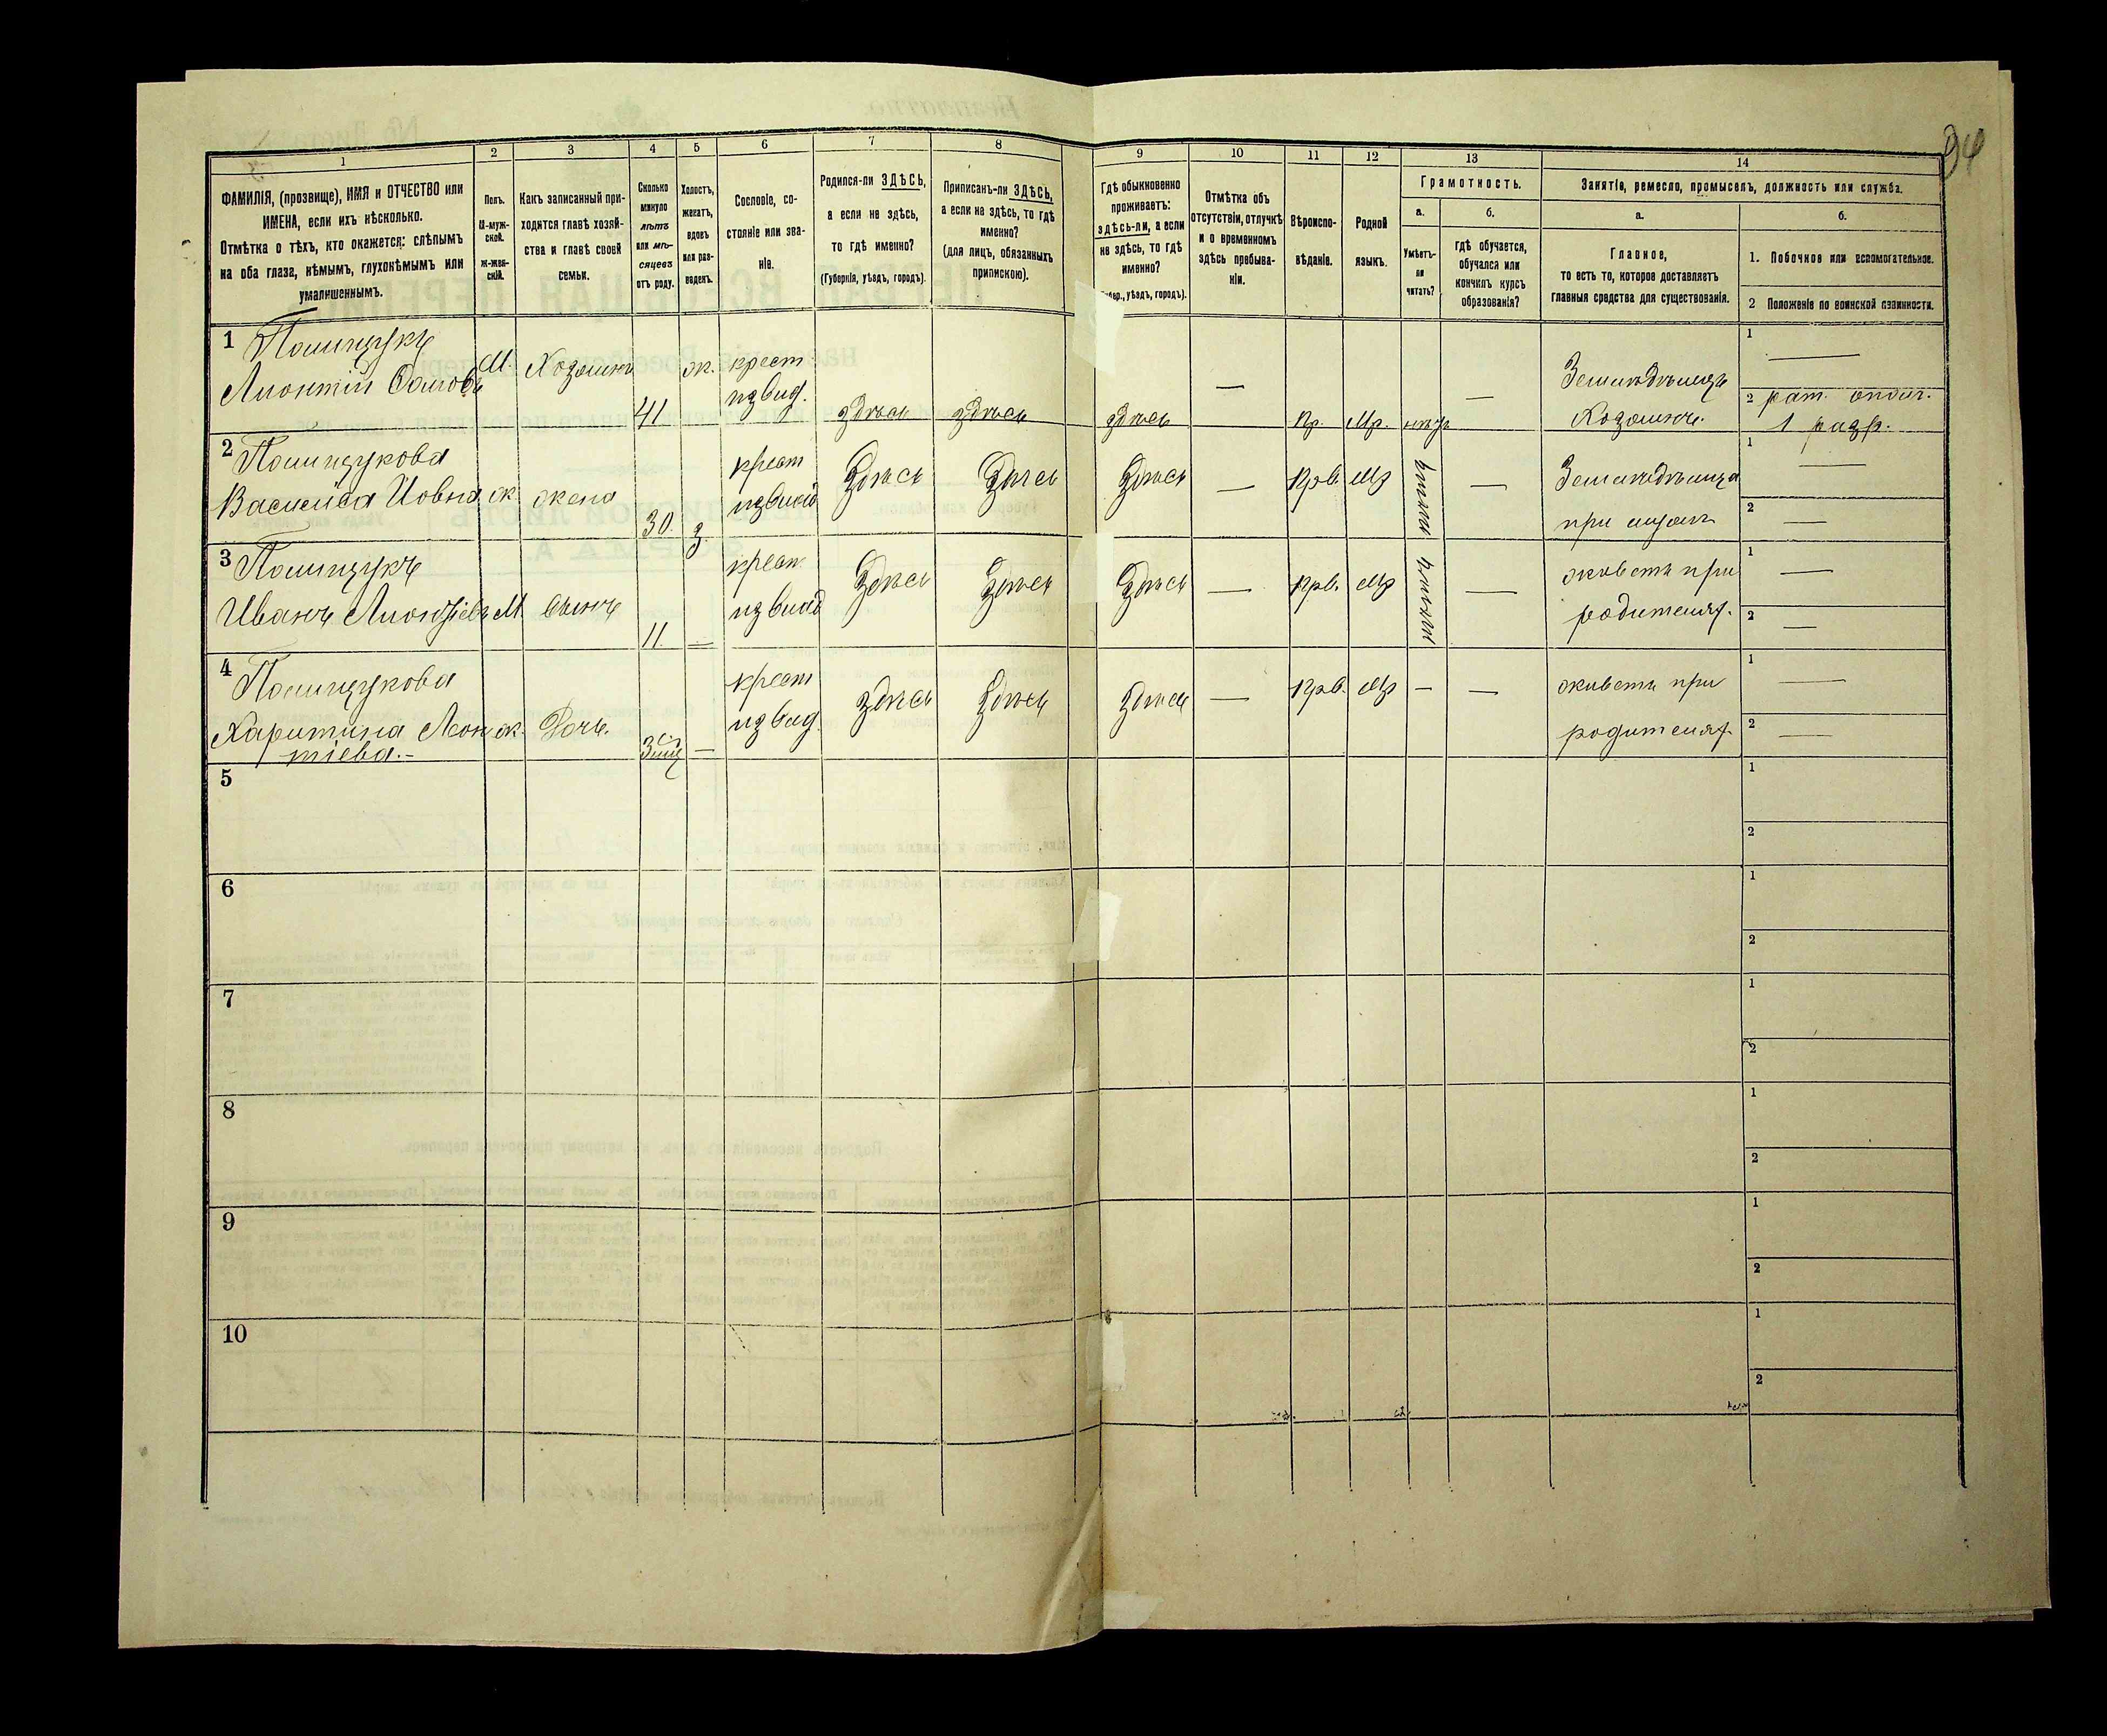 94
1 2 3 4 5 6 7 8 9 10 11 12 13 14
ФАМИЛІЯ, (прозвище), ИМЯ и ОТЧЕСТВО или
ИМЕНА, если ихъ нѣсколько.
Отмѣтка о тѣхъ, кто окажется: слѣпымъ
на оба глаза, нѣмымъ, глухонѣмымъ или
умалишеннымъ.
Полъ.
М-муж-
ской.
Ж-жен-
скій.
Какъ записанный при-
ходится главѣ хозяй-
ства и главѣ своей
семьи.
Сколько
минуло
лѣтъ
или мѣ-
сяцевъ
отъ роду.
Холостъ,
женатъ,
вдовъ
или раз-
веденъ.
Сословіе, со-
стояніе или зва-
ніе.
Родился-ли ЗДѢСЬ,
а если не здѣсь,
то гдѣ именно?
(Губернія, уѣздъ, городъ).
Приписанъ-ли ЗДѢСЬ,
а если не здѣсь, то гдѣ
именно?
(для лицъ, обязанныхъ
припискою).
Гдѣ обыкновенно
проживаетъ:
здѣсь-ли, а если
не здѣсь, то гдѣ
именно?
уѣздъ, городъ).
Отмѣтка объ
отсутствіи, отлучкѣ
и о временномъ
здѣсь пребыва-
ніи.
Вѣроиспо-
вѣданіе.
Родной
языкъ.
Грамотность.
а.
Умѣетъ-
ли
читать?
б.
Гдѣ обучается,
обучался или
кончилъ курсъ
образованія?
Занятіе, ремесло, промыселъ, должность или служба.
а.
Главное,
то есть то, которое доставляетъ
главныя средства для существованія.
б.
1. Побочное или вспомогательное.
2 Положеніе по воинской повинности.
1 Полищукъ
Ліонтій М. Хозяинъ 41 ж. крест.
изъ влад. здѣсь здѣсь здѣсь — — Пр. Мр. нѣтъ — Земледѣлецъ
Хозяинъ. 1 —
2 рат. ополч.
1 разр.
2 Полищукова
Василиса Іовна ж. жена 30. з. крест
изъ влад здѣсь здѣсь здѣсь — Прв. Мр — Земледѣлица
при мужѣ 1 —
2 —
3 Полищукъ
Иванъ Ліонтіевъ М. сынъ 11. = крест
изъ влад здѣсь здѣсь здѣсь — Прв. Мр — живетъ при
родителях. 1 —
2 —
4 Полищукова
Харитина Леон
тіева.- ж. Дочь. — крест
изъ влад. здѣсь здѣсь здѣсь — Прв. Мр — — живетъ при
родителях. 1 —
2 —
5 1
2
6 1
2
7 1
2
8 1
2
9 1
2
10 1
2